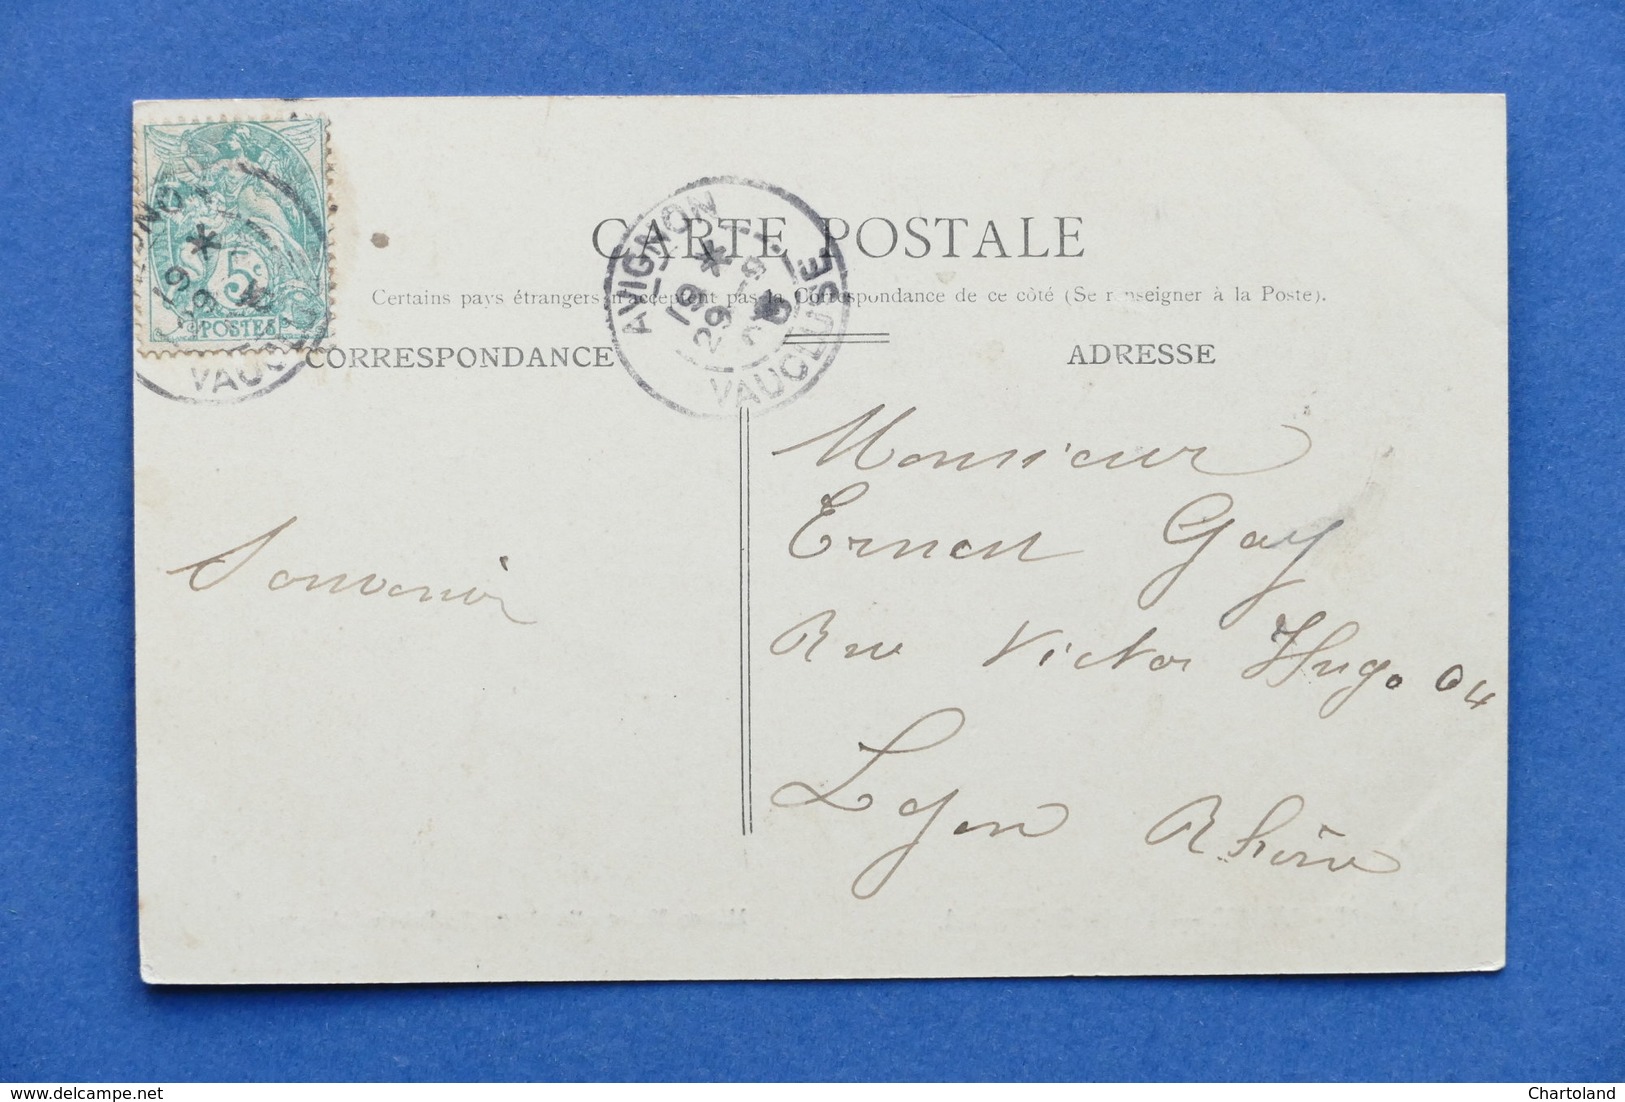 CARTE POSTALE
Certains pays étrangers n'acceptent pas la Correspondance de ce côté (Se renseigner à la Poste).
CORRESPONDANCE
ADRESSE
5c
POSTES
VAUCLUSE
AVIGNON
19 *
29 -9
VAUCLUSE
Souvenir
Monsieur
Ernest Gay
Rue Victor Hugo 64
Lyon Rhône
www.delcampe.net
Chartoland